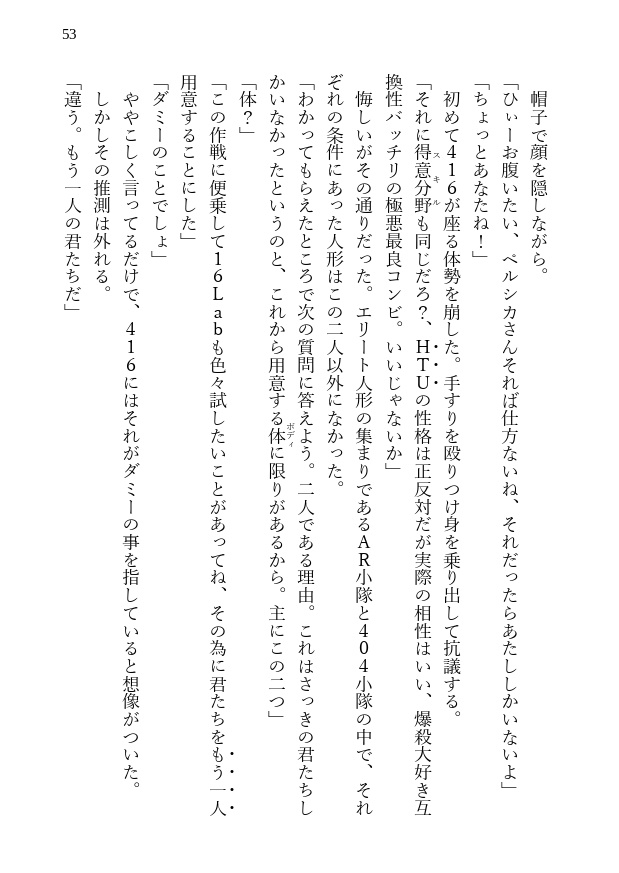 53
帽子で顔を隠しながら。
「ひぃーお腹いたい、ペルシカさんそれば仕方ないね、それだったらあたししかいないよ」
「ちょっとあなたね！」
初めて416が座る体勢を崩した。手すりを殴りつけ身を乗り出して抗議する。
「それに得意分野も同じだろ？、HTUの性格は正反対だが実際の相性はいい、爆殺大好き互
スキル
換性バッチリの極悪最良コンビ。いいじゃないか」
悔しいがその通りだった。エリート人形の集まりであるAR小隊と404小隊の中で、それ
ぞれの条件にあった人形はこの二人以外になかった。
「わかってもらえたところで次の質問に答えよう。二人である理由。これはさっきの君たちし
かいなかったというのと、これから用意する体に限りがあるから。主にこの二つ」
ボディ
「体？」
「この作戦に便乗して16Labも色々試したいことがあってね、その為に君たちをもう一人
用意することにした」
「ダミーのことでしょ」
ややこしく言ってるだけで、416にはそれがダミーの事を指していると想像がついた。
しかしその推測は外れる。
「違う。もう一人の君たちだ」